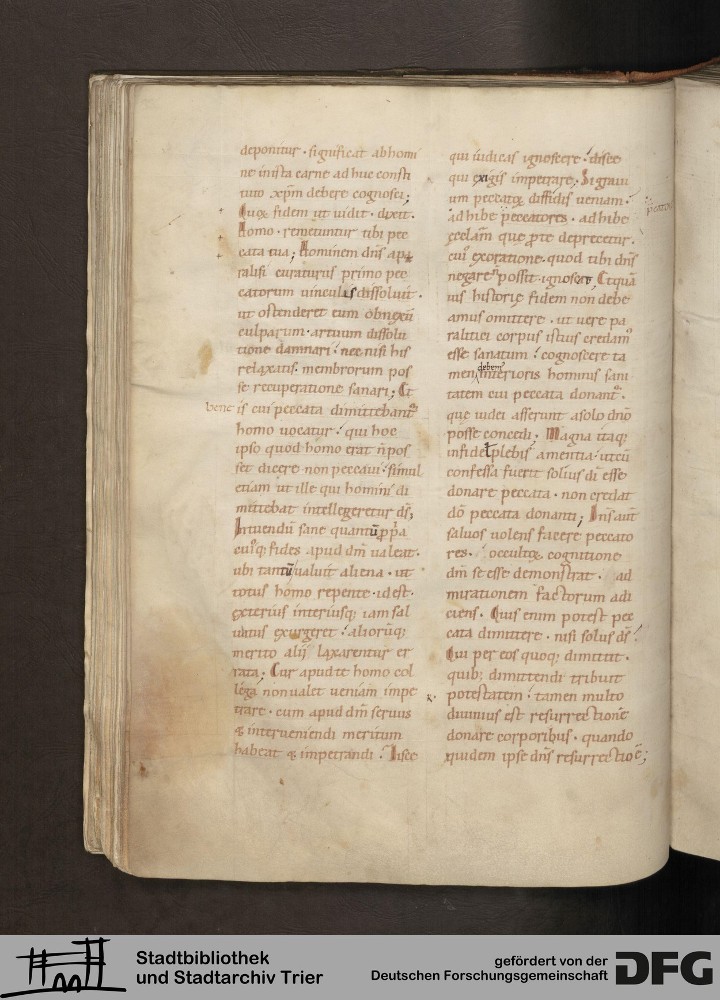 deponitur · significat ab homi
ne in ista carne ad huc consti
tuto xp̅m debere cognosci;
Quoꝝ fidem ut uidit · dixit ·
Homo · remittuntur tibi pec
cata tua; Hominem dn̅s apa
ralisi curaturus primo pec
catorum uinculis dissoluit ·
ut ostenderet eum obnexu̅
culparum · artuum dissolu
tione damnari · nec nisi his
relaxatis membrorum pos
se recuperatione sanari; Et
bene is cui peccata dimittebant᷒
homo uocatur · qui hoc
ipso quod homo erat n̅ pos
set dicere non peccaui · simul
etiam ut ille qui homini di
mittebat intellegeretur ds̅;
Intuendu̅ sane quantu̅ ꝓp̅a
cui᷒q; fides apud dm̅ ualeat ·
ubi tantu̅ ualuit aliena · ut
totus homo repente · id est ·
exterius interiusq; iam sal
uatus exurgeret · aliorūq;
merito alii laxarentur er
rata; Cur apud te homo col
lega non ualet ueniam impe
trare · cum apud dm̅ seruus
& interueniendi meritum
habeat & impetrandi · Disce
qui iudicas ignoscere · disce
qui exigis impetrare; Si graui
um peccatoꝝ diffidis ueniam ·
adhibe peccatores · adhibe
peccatores
ecclam̅ que ꝓ te deprecetur ·
cui᷒ exoratione · quod tibi dn̅s
negare n̅ possit · ignoscat; Et qua̅
uis historię fidem non debe
amus omittere · ut uere pa
ralitici corpus istius credam᷒
esse sanatum · cognoscere ta
debem᷒
men interioris hominis sani
tatem cui peccata donant᷒ ·
que iudei asserunt a solo dn̅o
posse concedi; Magna itaq;
infidel plebis amentia · ut cu̅
confessa fuerit solius di̅ esse
donare peccata · non credat
do̅ peccata donanti; Dn̅s aut̅
saluos uolens facere peccato
res · occultoꝝ cognitione
dm̅ se esse demonstrat · ad
mirationem factorum adi
ciens · Quis enim potest pec
cata dimittere · nisi solus ds̅ ·
Qui per eos quoq; dimittit ·
quib; dimittendi tribuit
potestatem · tamen multo
diuinius est resurrectione̅
donare corporibus · quando
quidem ipse dn̅s resurrectio e̅;
Stadtbibliothek
und Stadtarchiv Trier
gefördert von der
Deutschen Forschungsgemeinschaft
DFG